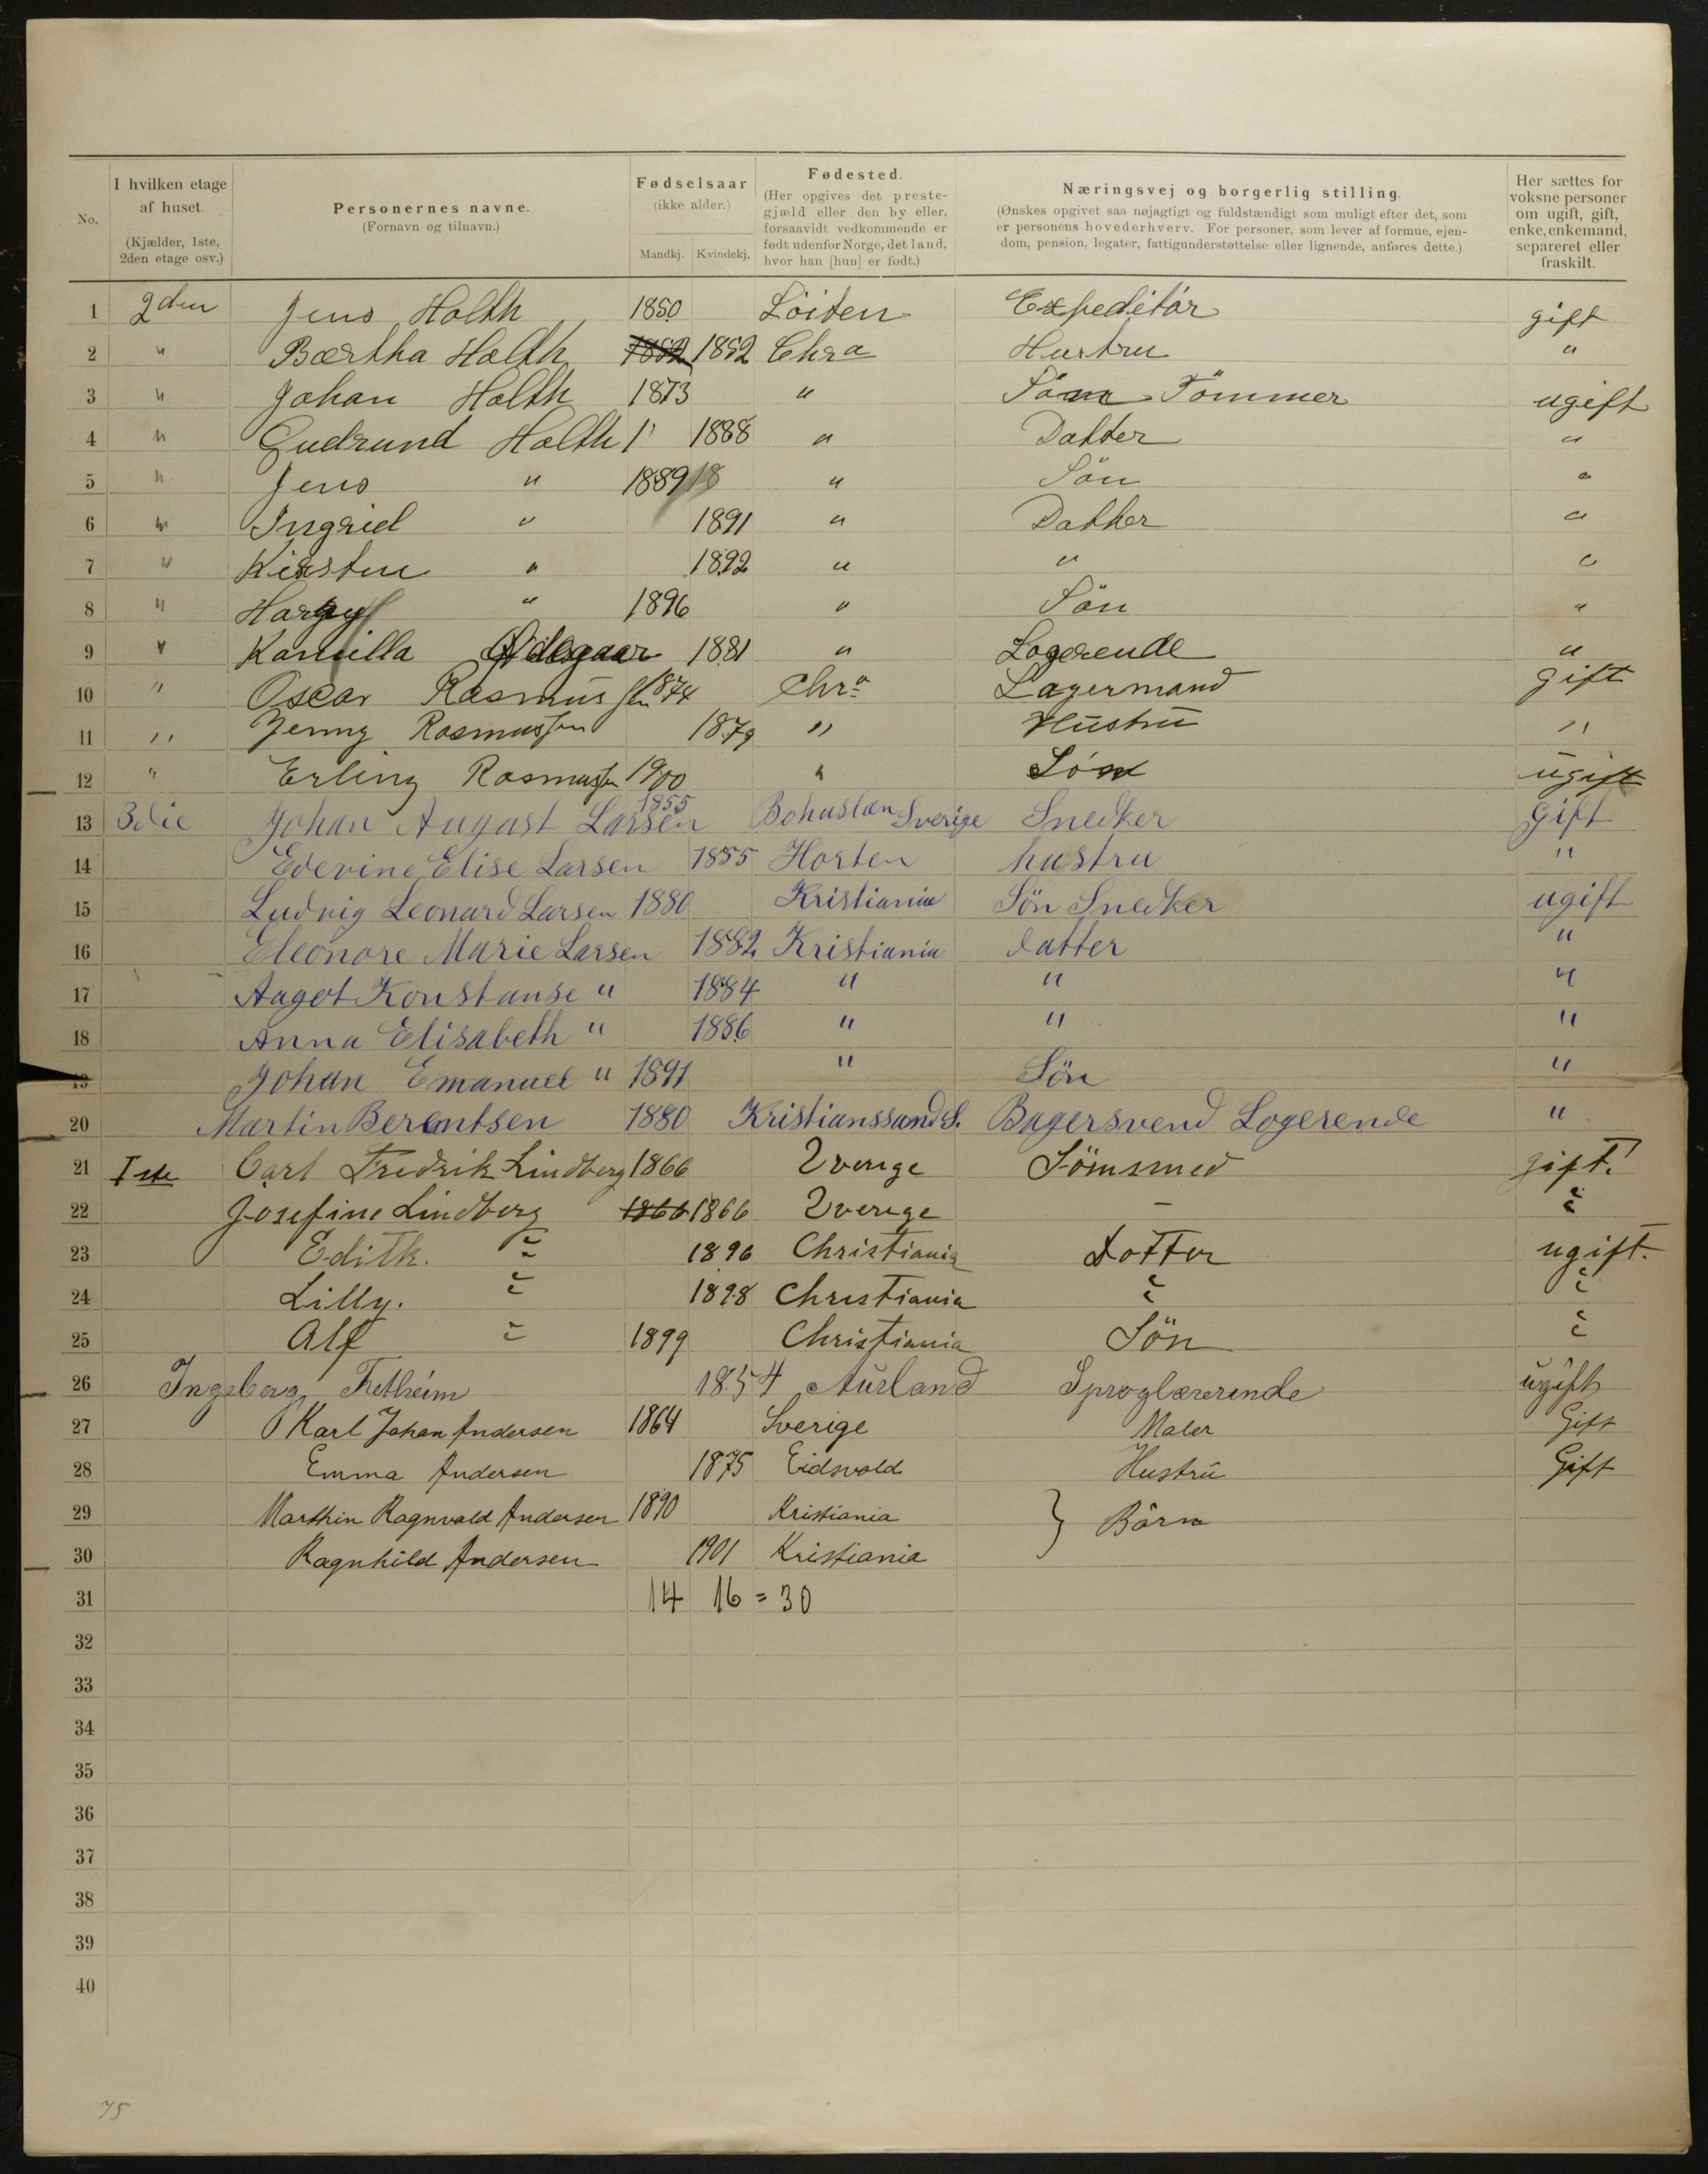 No. I hvilken etage af huset. (Kjælder, 1ste, 2den etage osv.) Personernes navne. (Fornavn og tilnavn.) Fødselsaar (ikke alder.) Mandkj. Kvindekj. Fødested. (Her opgives det prestegjæld eller den by eller, forsaavidt vedkommende er født udenfor Norge, det land, hvor han [hun] er født.) Næringsvej og borgerlig stilling. (Ønskes opgivet saa nøjagtigt og fuldstændigt som muligt efter det, som er personens hovederhverv. For personer, som lever af formue, ejendom, pension, legater, fattigunderstøttelse eller lignende, anføres dette.) Her sættes for voksne personer om ugift, gift, enke, enkemand, separeret eller fraskilt.
1 2den Jens Holth 1850 Löiten Expeditör gift
2 " Bærtha Holth 1852 1852 Chra Hustru "
3 " Johan Holth 1873 " Sön Tömmer ugift
4 " Gudrund Holth 1888 " Datter "
5 " Jens " 1889 18 " Sön "
6 " Ingrid " 1891 " Datter "
7 " Kirsten " 1892 " " "
8 " Harry " 1896 " Sön "
9 " Kamilla 1881 " Logerende "
10 " Oscar Rasmussen 1874 Chra Lagermand gift
11 " Jenny Rasmussen 1879 " Hustru "
12 " Erling Rasmussen 1900 " Sön ugift
13 3die Johan August Larsen 1855 Bohuslæn Sverige Snedker Gift
14 Edevine Elise Larsen 1855 Horten hustru "
15 Ludvig Leonard Larsen 1880 Kristiania Sön Snedker ugift
16 Eleonore Marie Larsen 1882 Kristiania datter "
17 Aagot Konstanse " 1884 " " "
18 Anna Elisabeth " 1886 " " "
19 Johan Emanuel " 1891 " Sön "
20 Martin Berentsen 1880 Kristianssand S. Bagersvend Logerende "
21 Iste Carl Fredrik Lindberg 1866 Sverige Sömsmed gift.
22 Josefine Lindberg 1866 1866 Sverige - "
23 Edith. " 1896 Christiania Dotter ugift.
24 Lilly. " 1898 Christiania " "
25 Alf " 1899 Christiania Sön "
26 Ingeborg Fretheim 1854 Aurland Sproglærerinde ugift
27 Karl Johan Andersen 1864 Sverige Maler Gift
28 Emma Andersen 1875 Eidsvold Hustru Gift
29 Marthin Ragnvald Andersen 1890 Kristiania } Börn
30 Ragnhild Andersen 1901 Kristiania
31 14 16 = 30
32
33
34
35
36
37
38
39
40
75